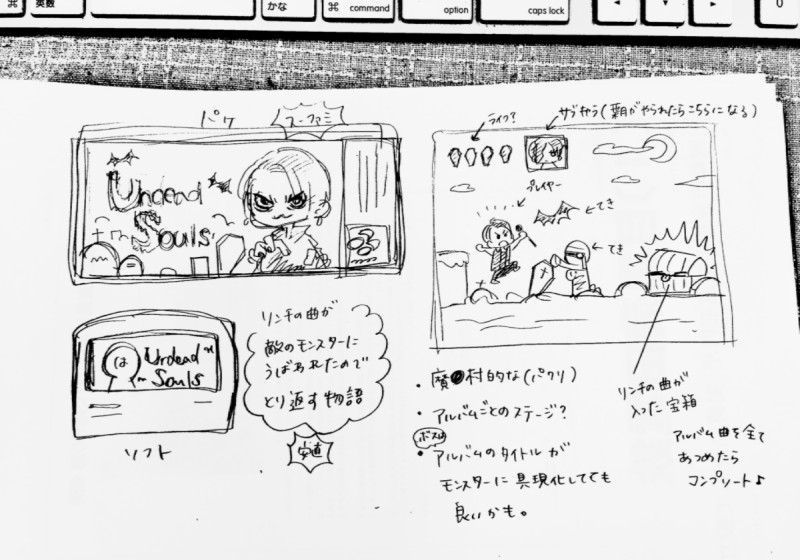 ⌘
英数
かな
⌘ command
option
caps lock
◂
▾
▸
0
パケ
スーファミ
Undead
Souls
は
Undead
Souls
ソフト
リンチの曲が
敵のモンスターに
うばわれたので
とり返す物語
安直
ライフ?
サブキャラ(葉月がやられたらこちらになる)
プレイヤー
←てき
←てき
・魔●村的な(パクリ)
・アルバムごとのステージ?
ボスは
・アルバムのタイトルが
モンスターに具現化してても
良いかも。
リンチの曲が
入った宝箱
アルバム曲を全て
あつめたら
コンプリート♪